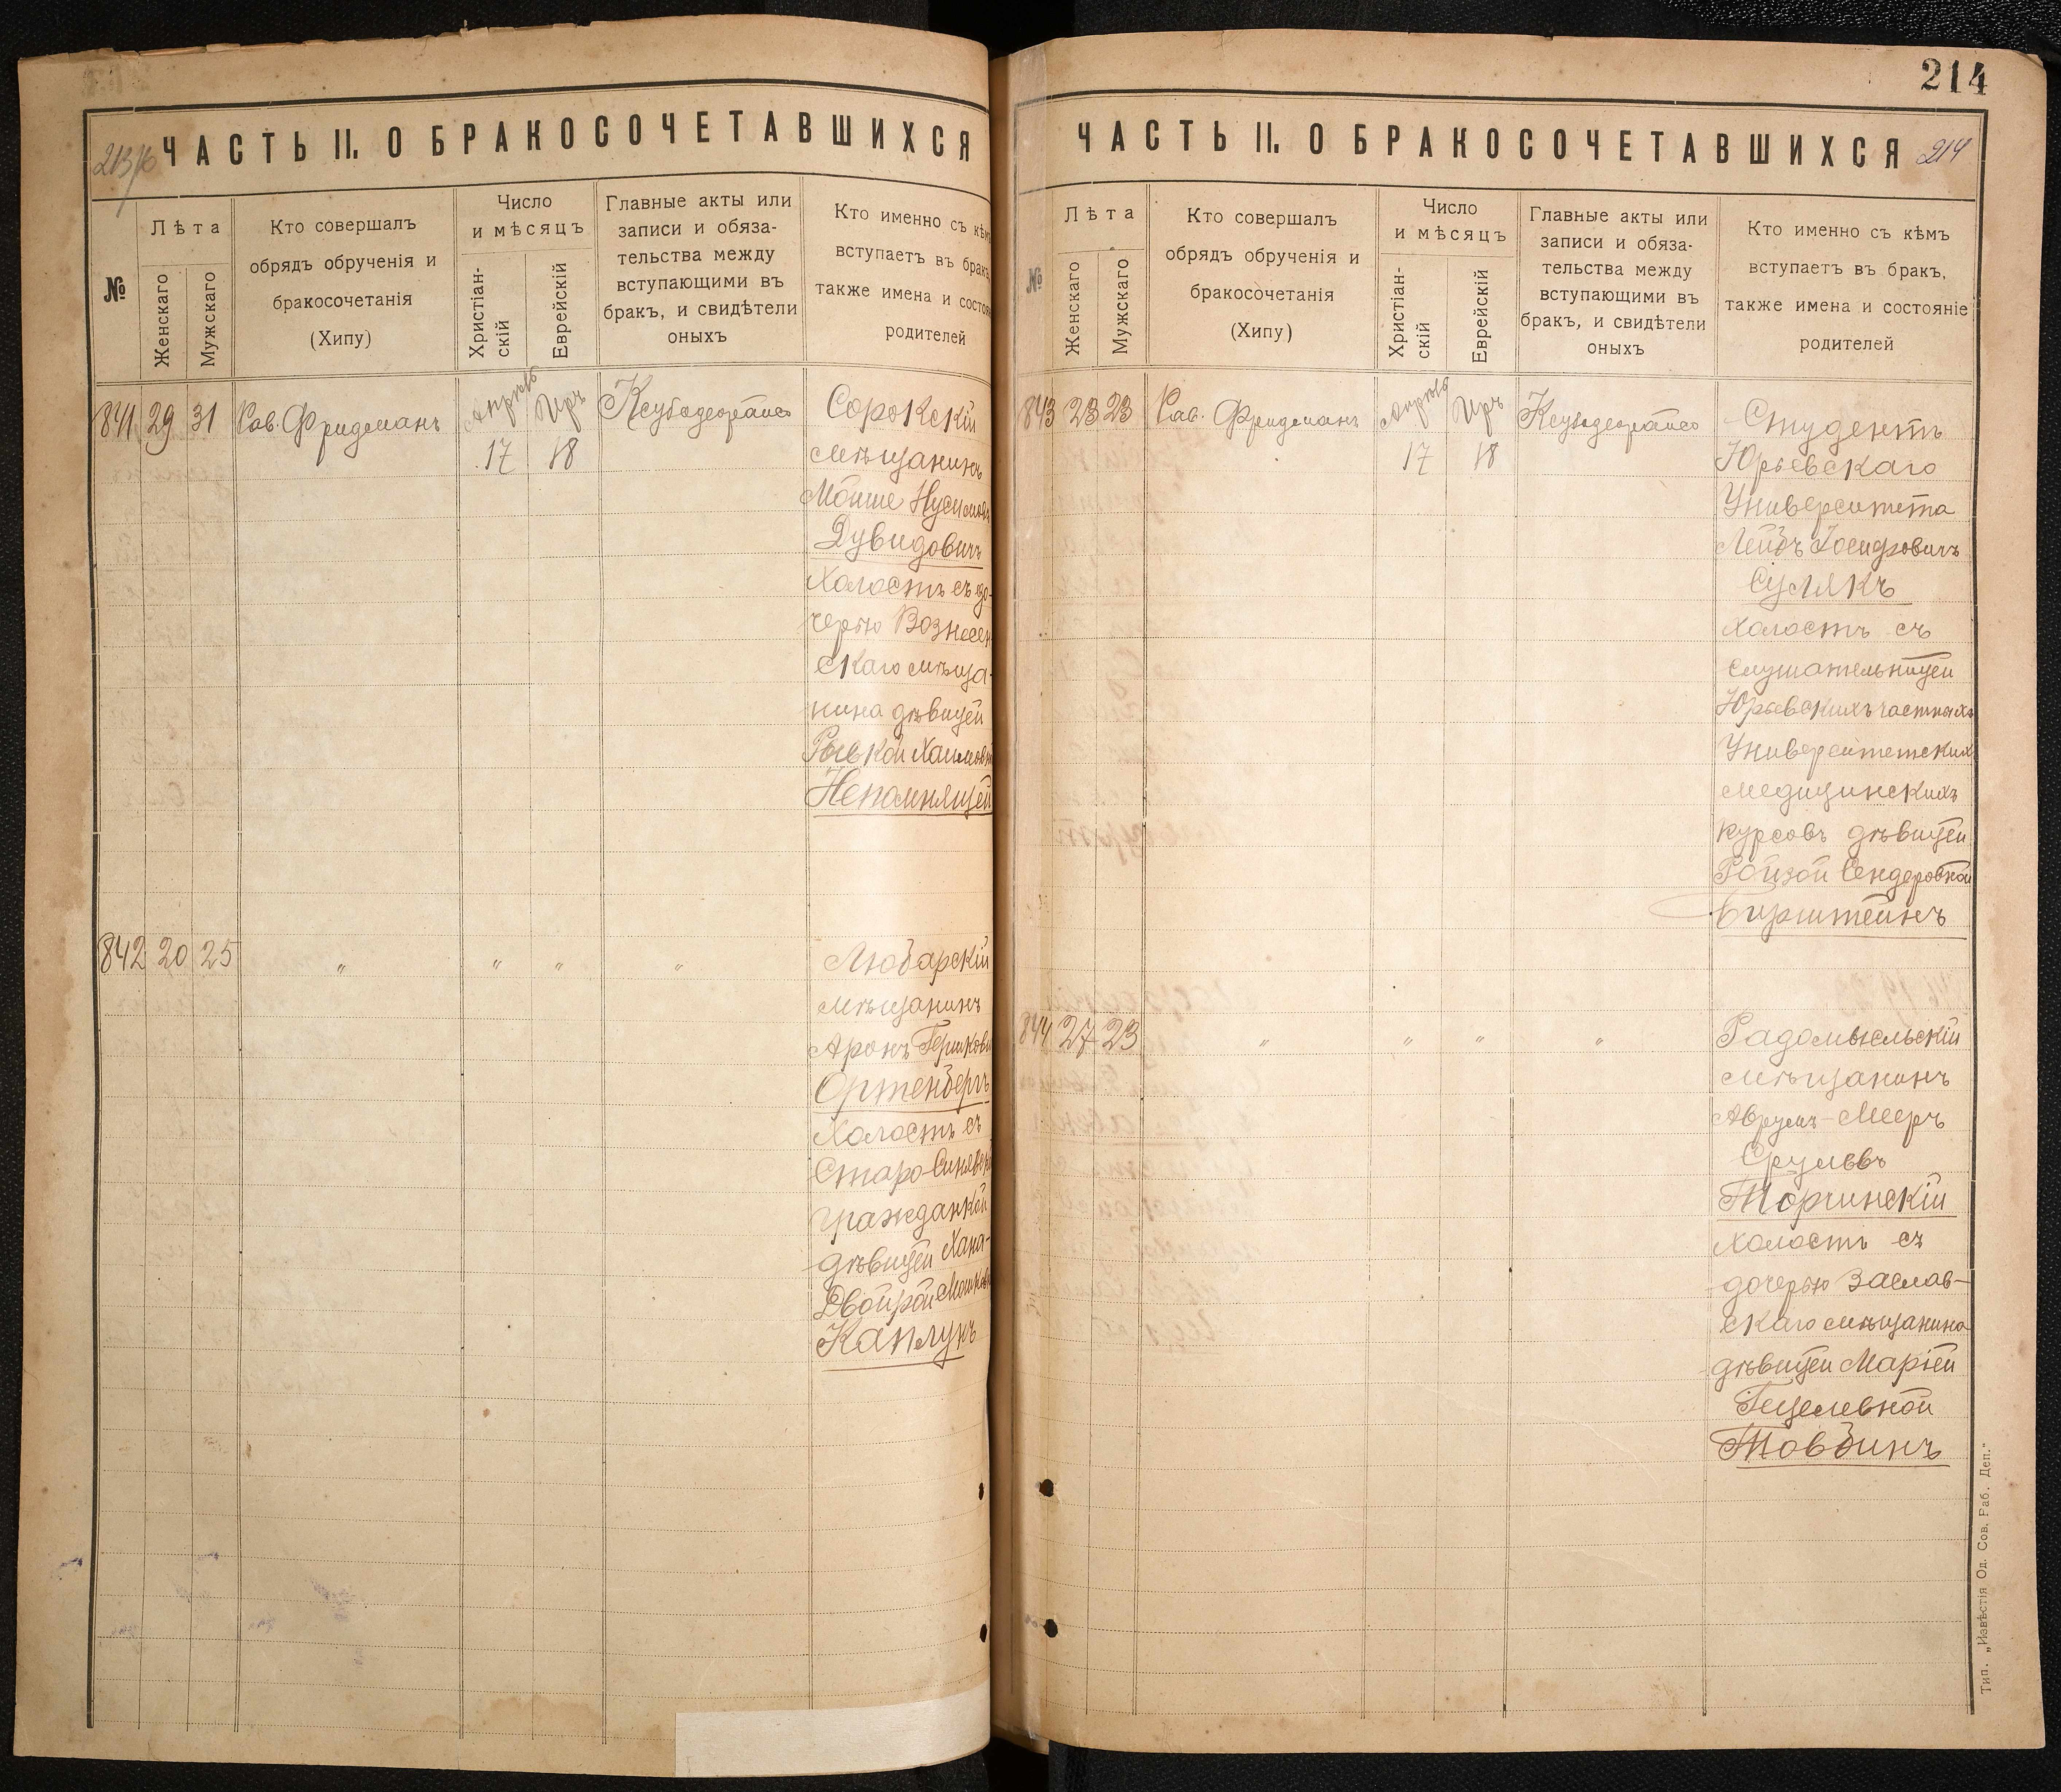 213/б
ЧАСТЬ II. О БРАКОСОЧЕТАВШИХСЯ
№
Лѣта
Женскаго
Мужскаго
Кто совершалъ
обрядъ обрученія и
бракосочетанія
(Хипу)
Число
и мѣсяцъ
Христіан-
скій
Еврейскій
Главные акты или
записи и обяза-
тельства между
вступающими въ
бракъ, и свидѣтели
оныхъ
Кто именно съ кѣмъ
вступаетъ въ бракъ,
также имена и состоя
родителей
841 29 31 Рав. Фридманъ
Апрѣль Iръ
17 18
Сорокскій
мѣщанинъ
Мойше Нусимовъ
Дувидовичъ
холостъ съ до-
черью Вознесен
скаго мѣща-
нина дѣвицей
Рывкой Хаимовн
Непомнящей
842 20 25 " " " "
Любарскій
мѣщанинъ
Аронъ Гершкови
Ортенбергъ
холостъ съ
Старо-Синявск
гражданкой
дѣвицей Хана-
Двойрой Мошков
Каплунъ
214
ЧАСТЬ II. О БРАКОСОЧЕТАВШИХСЯ
214
№
Лѣта
Женскаго
Мужскаго
Кто совершалъ
обрядъ обрученія и
бракосочетанія
(Хипу)
Число
и мѣсяцъ
Христіан-
скій
Еврейскій
Главные акты или
записи и обяза-
тельства между
вступающими въ
бракъ, и свидѣтели
оныхъ
Кто именно съ кѣмъ
вступаетъ въ бракъ,
также имена и состояніе
родителей
843 23 23 Рав. Фридманъ
Апрѣль Iръ
17 18
Студентъ
Юрьевскаго
Университета
Лейбъ Іосифовичъ
Сулякъ
холостъ съ
слушательницей
Юрьевскихъ частныхъ
Университетскихъ
медицинскихъ
курсовъ дѣвицей
Ройзой Сендеровной
Бирштейнъ
844 27 23 " " " "
Радомысльскій
мѣщанинъ
Аврумъ-Мееръ
Срулевъ
Торчинскій
холостъ съ
дочерью Заслав-
скаго мѣщанина
дѣвицей Маріей
Гецелевной
Товбинъ
Тип. „Извѣстія Од. Сов. Раб. Деп."